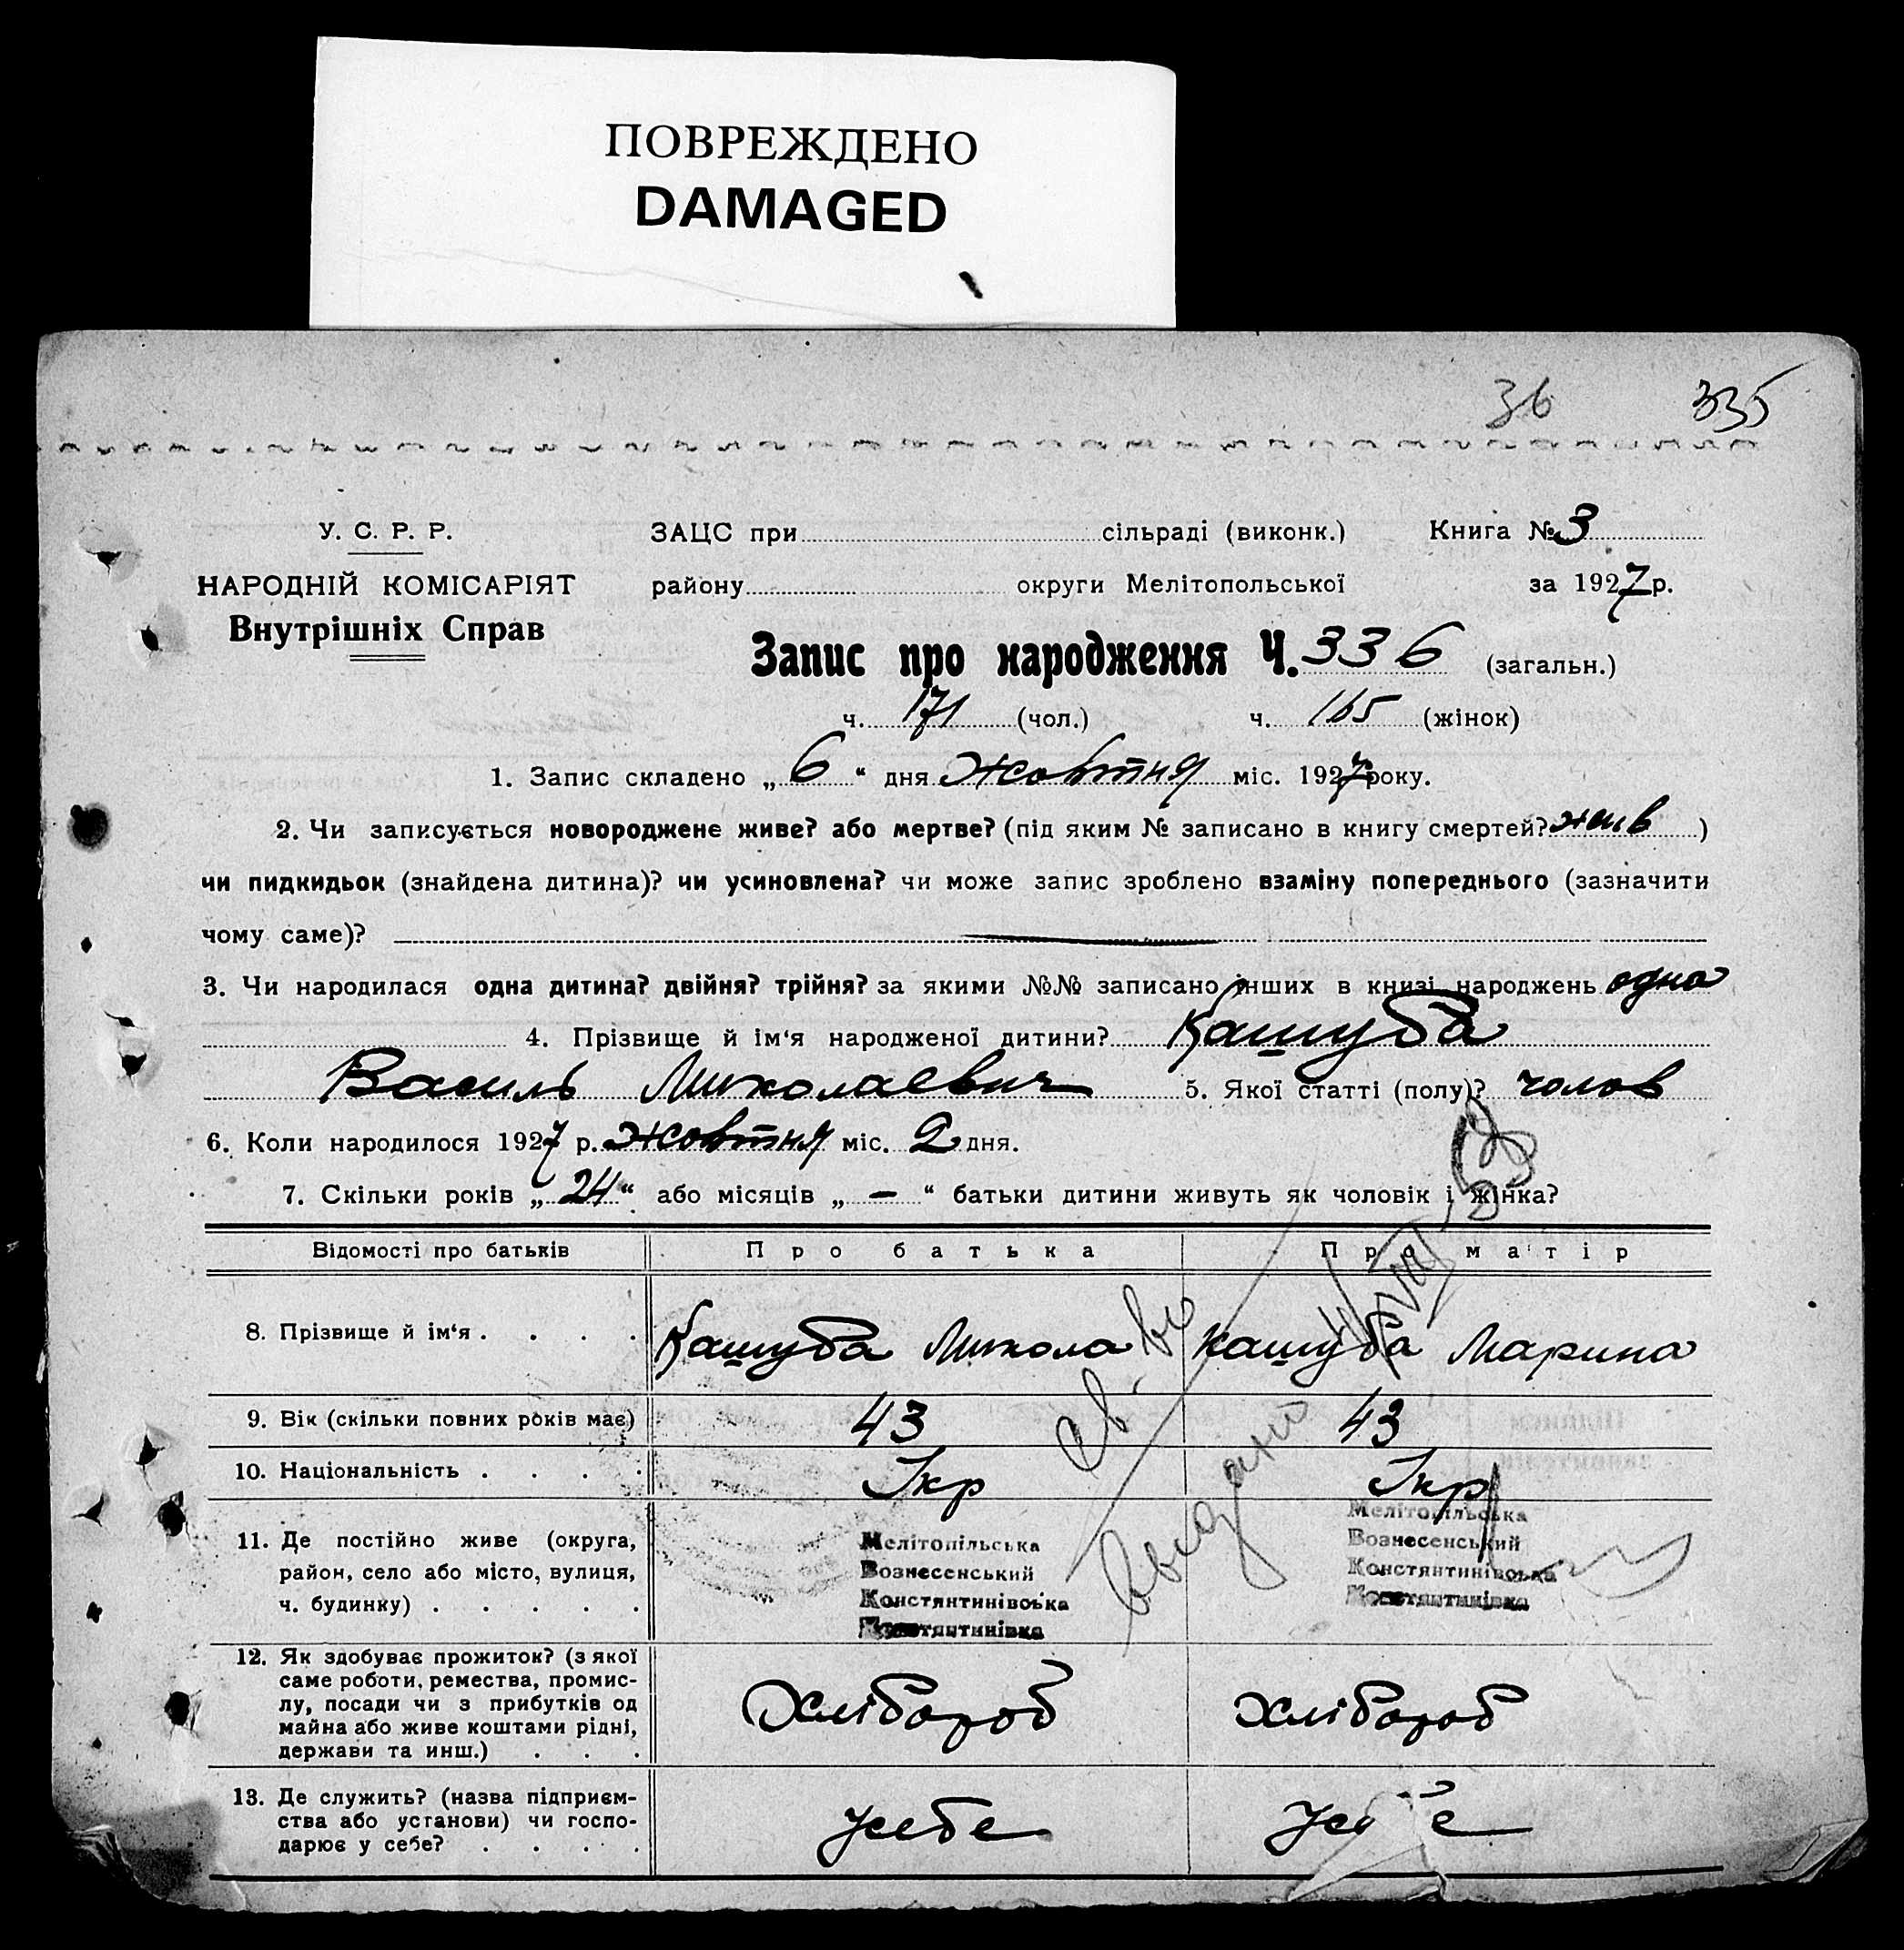 ПОВРЕЖДЕНО
DAMAGED
36 335
У. С. Р. Р. ЗАЦС при сільраді (виконк.) Книга № 3
НАРОДНІЙ КОМІСАРІЯТ району округи Мелітопольської за 1927 р.
Внутрішніх Справ
Запис про народження Ч. 336 (загальн.)
ч. 171 (чол.) ч. 165 (жінок)
1. Запис складено „ 6 “ дня Жовтня міс. 1927 року.
2. Чи записується новороджене живе? або мертве? (під яким № записано в книгу смертей? жив )
чи пидкидьок (знайдена дитина)? чи усиновлена? чи може запис зроблено взаміну попереднього (зазначити
чому саме)?
3. Чи народилася одна дитина? двійня? трійня? за якими №№ записано інших в книзі народжень одна
4. Прізвище й ім‘я народженої дитини? Кашуба
Василь Миколаевич 5. Якої статті (полу)? чолов
6. Коли народилося 1927 р. Жовтня міс. 2 дня.
7. Скільки років „ 24 “ або місяців „ — “ батьки дитини живуть як чоловік і жінка?
Відомості про батьків Про батька Про матір
8. Прізвище й ім‘я . . . . Кашуба Микола Кашуба Марина
9. Вік (скільки повних років має) 43 43
10. Національність . . . . Укр Укр
11. Де постійно живе (округа,
район, село або місто, вулиця,
ч. будинку) . . . . .
Мелітопільська
Вознесенський
Констянтинівська
Констянтинівка
Мелітопільська
Вознесенський
Констянтинівська
Констянтинівка
12. Як здобуває прожиток? (з якої
саме роботи, ремества, промис-
лу, посади чи з прибутків од
майна або живе коштами рідні,
держави та инш.) . . .
Хлібороб Хлібороб
13. Де служить? (назва підприєм-
ства або установи) чи госпо-
дарює у себе? . . . .
Усебе Усе е